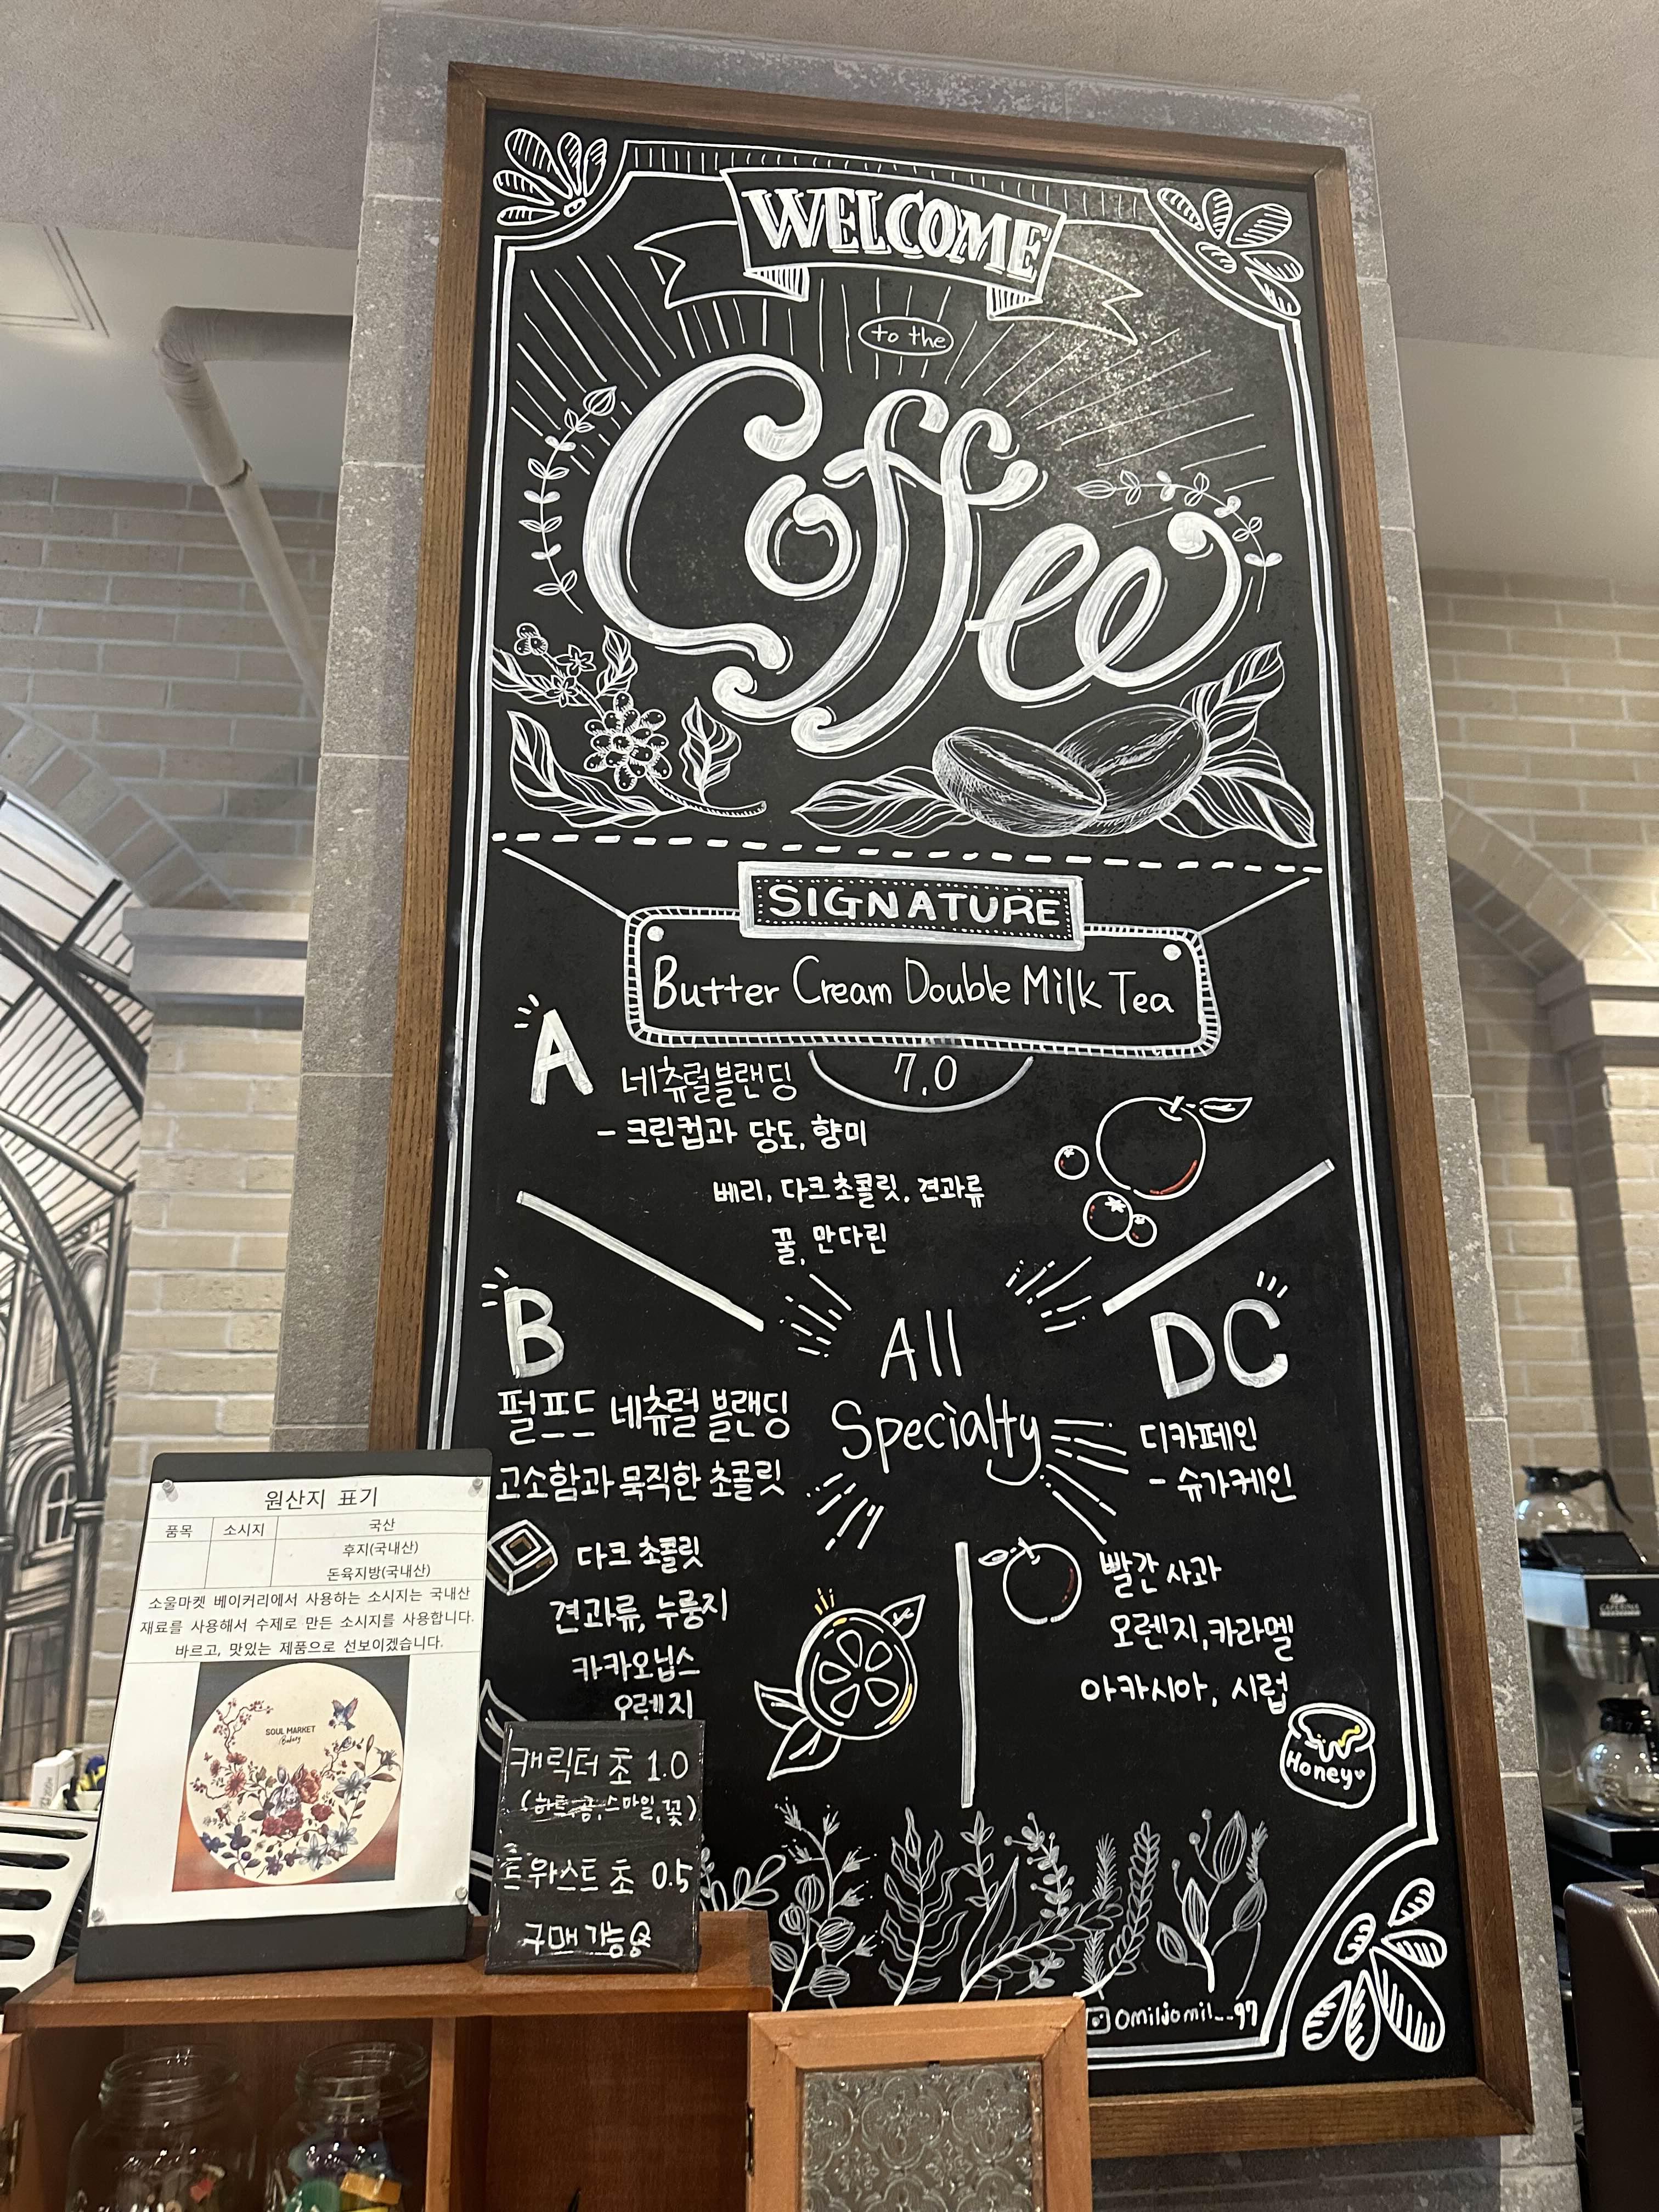 WELCOME
to the
Coffee
SIGNATURE
Butter Cream Double Milk Tea
7.0
A
네츄럴블랜딩
- 크린컵과 당도, 향미
베리, 다크초콜릿, 견과류
꿀, 만다린
All
Specialty
B
펄프드 네츄럴 블랜딩
고소함과 묵직한 초콜릿
다크 초콜릿
견과류, 누룽지
카카오닙스
오렌지
DC
디카페인
- 슈가케인
빨간 사과
오렌지, 카라멜
아카시아, 시럽
Honey
omiljomil__97
원산지 표기
품목 소시지 국산
후지(국내산)
돈육지방(국내산)
소울마켓 베이커리에서 사용하는 소시지는 국내산
재료를 사용해서 수제로 만든 소시지를 사용합니다.
바르고, 맛있는 제품으로 선보이겠습니다.
SOUL MARKET
Bakery
캐릭터 초 1.0
(하트, 곰, 스마일, 꽃)
트위스트 초 0.5
구매가능용